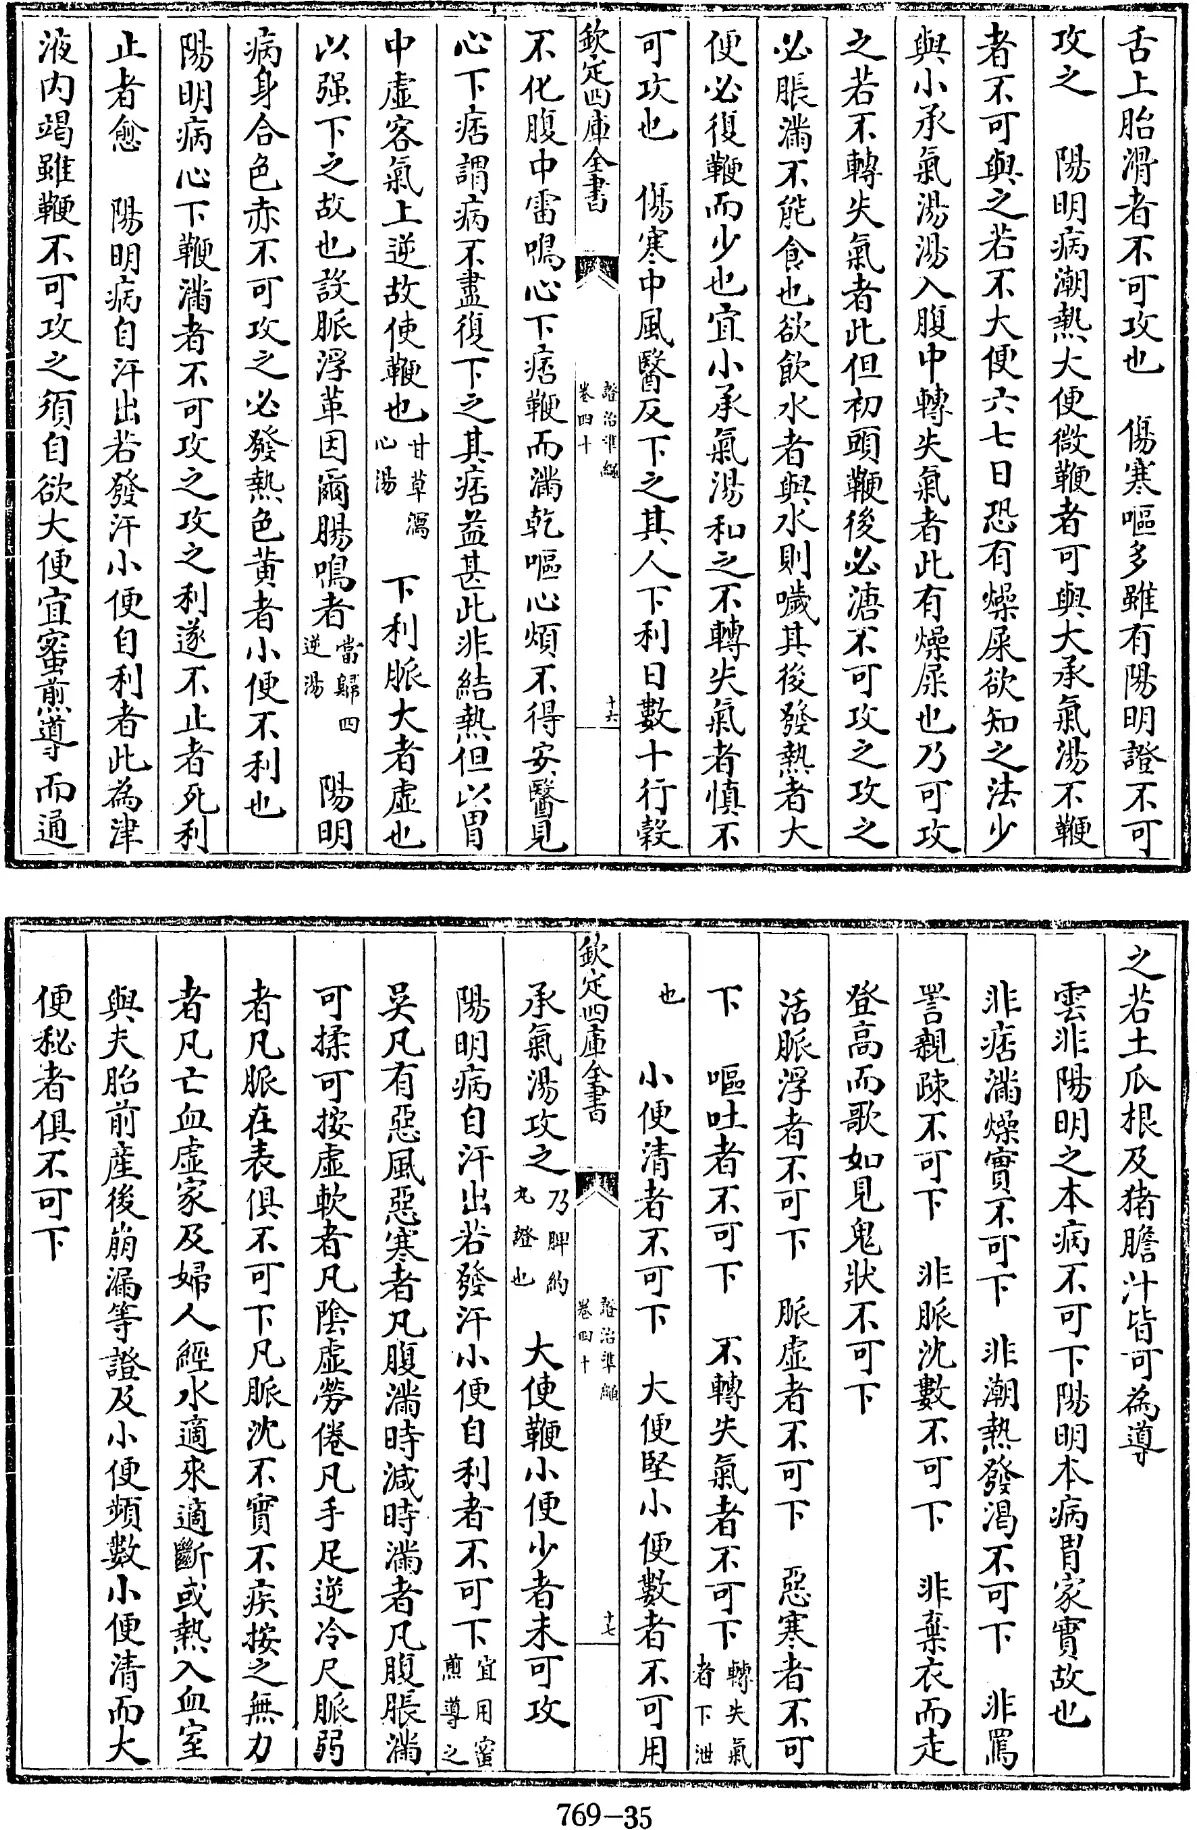 舌上胎滑者不可攻也　傷寒嘔多雖有陽明證不可
攻之　陽明病潮熱大便微鞕者可與大承氣湯不鞕
者不可與之若不大便六七日恐有燥屎欲知之法少
與小承氣湯湯入腹中轉失氣者此有燥屎也乃可攻
之若不轉失氣者此但初頭鞕後必溏不可攻之攻之
必脹滿不能食也欲飲水者與水則噦其後發熱者大
便必復鞕而少也宜小承氣湯和之不轉失氣者慎不
可攻也　傷寒中風醫反下之其人下利日數十行穀
欽定四庫全書　證治準繩　卷四十　十六
不化腹中雷鳴心下痞鞕而滿乾嘔心煩不得安醫見
心下痞謂病不盡復下之其痞益甚此非結熱但以胃
中虛客氣上逆故使鞕也甘草瀉心湯　下利脈大者虛也
以强下之故也設脈浮革因爾腸鳴者當歸四逆湯　陽明
病身合色赤不可攻之必發熱色黃者小便不利也
陽明病心下鞕滿者不可攻之攻之利遂不止者死利
止者愈　陽明病自汗出若發汗小便自利者此為津
液内竭雖鞕不可攻之須自欲大便宜蜜煎導而通
之若土瓜根及猪膽汁皆可為導
雲非陽明之本病不可下陽明本病胃家實故也
非痞滿燥實不可下　非潮熱發渴不可下　非罵
詈親疎不可下　非脈沈數不可下　非棄衣而走
登高而歌如見鬼狀不可下
活脈浮者不可下　脈虛者不可下　惡寒者不可
下　嘔吐者不可下　不轉失氣者不可下轉失氣者下泄
也　小便清者不可下　大便堅小便數者不可用
欽定四庫全書　證治準繩　卷四十　十七
承氣湯攻之乃脾約丸證也　大便鞕小便少者未可攻
陽明病自汗出若發汗小便自利者不可下宜用蜜煎導之
吳凡有惡風惡寒者凡腹滿時減時滿者凡腹脹滿
可揉可按虛軟者凡陰虛勞倦凡手足逆冷尺脈弱
者凡脈在表俱不可下凡脈沈不實不疾按之無力
者凡亡血虛家及婦人經水適來適斷或熱入血室
與夫胎前產後崩漏等證及小便頻數小便清而大
便秘者俱不可下
769-35